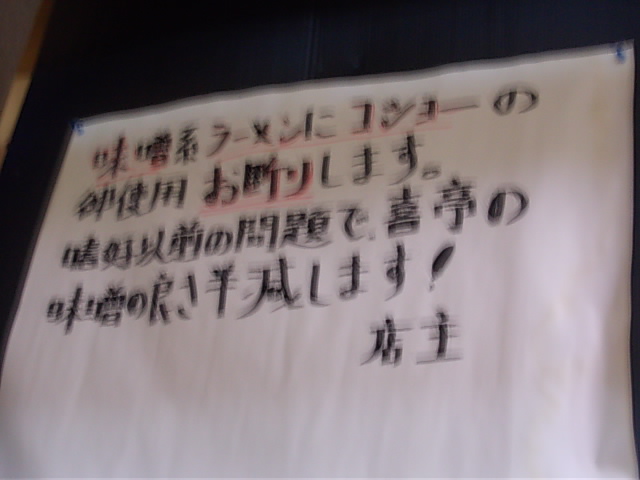 味噌系ラーメンにコショーの
御使用お断りします。
嗜好以前の問題で、喜亭の
味噌の良さ半減します!
店主